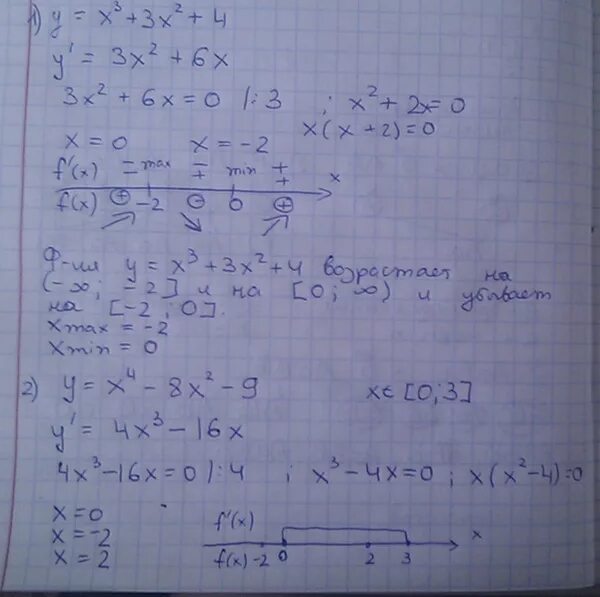 1) y = x³ + 3x² + 4
y' = 3x² + 6x
3x² + 6x = 0 |:3 ; x² + 2x = 0
x(x + 2) = 0
x = 0 x = -2
f'(x) max min x
f(x) + -2 - 0 +
Ф-ия y = x³ + 3x² + 4 возрастает на
(-∞; -2] и на [0; ∞) и убывает
на [-2; 0].
xmax = -2
xmin = 0
2) y = x⁴ - 8x² - 9 x∈[0;3]
y' = 4x³ - 16x
4x³ - 16x = 0 |:4 ; x³ - 4x = 0 ; x(x² - 4) = 0
x = 0
x = -2
x = 2
f'(x) x
f(x) -2 0 2 3